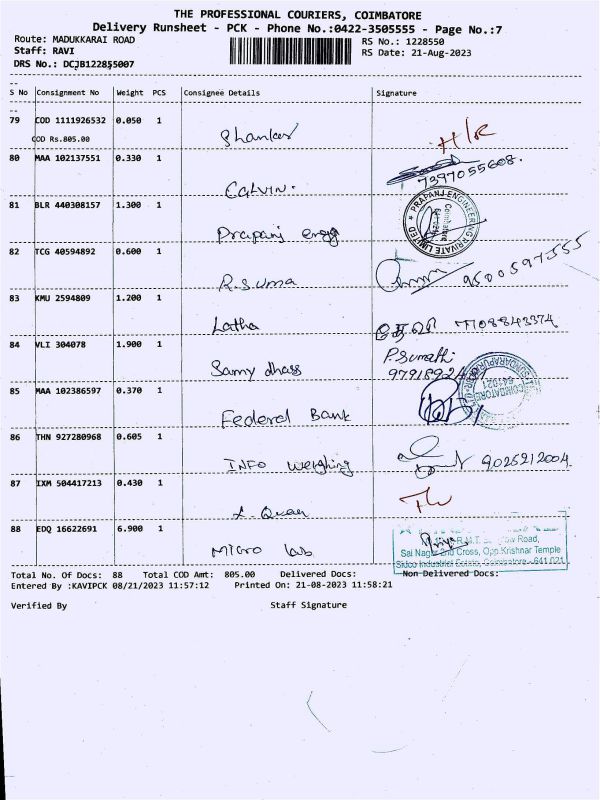 THE PROFESSIONAL COURIERS, COIMBATORE
Delivery Runsheet - PCK - Phone No.:0422-3505555 - Page No.:7
Route: MADUKKARAI ROAD
RS No.: 1228550
Staff: RAVI
RS Date: 21-Aug-2023
DRS No.: DCJB122855007
S No Consignment No Weight PCS Consignee Details Signature
79 COD 1111926532 0.050 1
COD Rs.805.00 Shankar
80 MAA 102137551 0.330 1
CALVIN. 7397055608.
81 BLR 440308157 1.300 1
Prapanj engg
PRAPANJ ENGINEERING PRIVATE LIMITED
82 TCG 40594892 0.600 1
R.Suma 9500597555
83 KMU 2594809 1.200 1
Latha 7708843374
84 VLI 304078 1.900 1 P.Sumathi
Samy dhass
85 MAA 102386597 0.370 1
Federal Bank
86 THN 927280968 0.605 1
INFO Weighing 9025212004
87 IXM 504417213 0.430 1
88 EDQ 16622691 6.900 1
Micro lab
Sai Nagar 2nd Cross, Opp.Krishnar Temple
Sidco Industrial Estate, Coimbatore - 641 021
Total No. Of Docs: 88 Total COD Amt: 805.00 Delivered Docs: Non Delivered Docs:
Entered By :KAVIPCK 08/21/2023 11:57:12 Printed On: 21-08-2023 11:58:21
Verified By Staff Signature